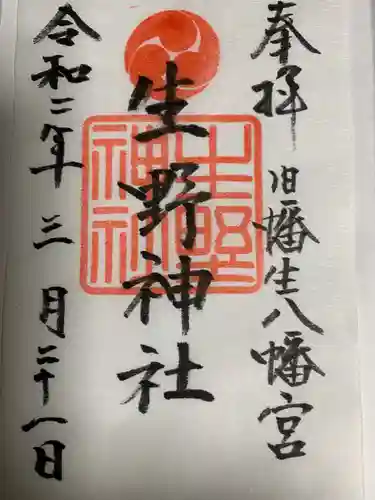 奉拝
旧幡生八幡宮
生野神社
生野神社
令和二年三月二十一日